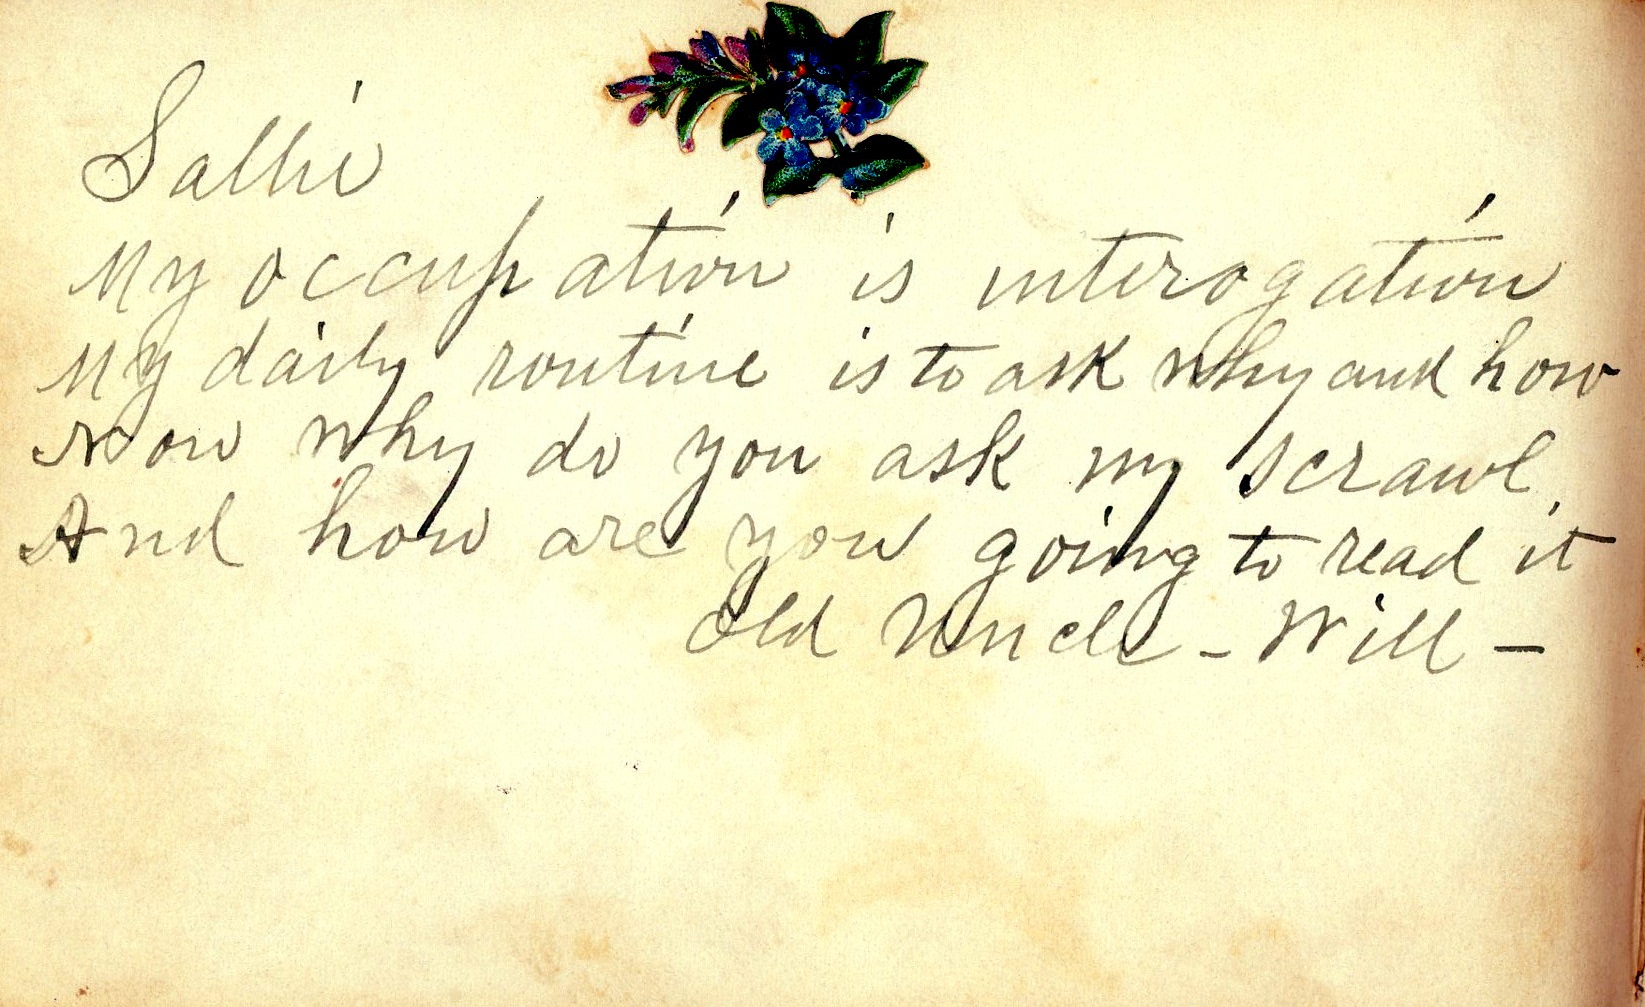 Sallie
My occupation is interogation
My daily routine is to ask why and how
Now why do you ask my scrawl
And how are you going to read it
Old Uncle - Will -